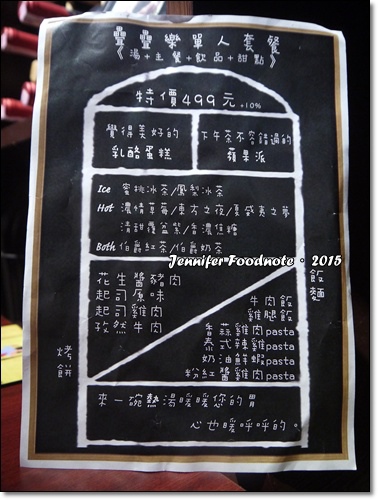 疊疊樂單人套餐
《湯+主餐+飲品+甜點》
特價499元 +10%
覺得美好的
乳酪蛋糕
下午茶不容錯過的
蘋果派
Ice 蜜桃冰茶/鳳梨冰茶
Hot 濃情草莓/東方之夜/優盛夷之夢
清甜覆盆紫/香濃焦糖
Both 伯爵紅茶/伯爵奶茶
Jennifer Foodnote · 2015
花生醬豬肉
起司原味
起司牛肉
孜然牛肉
烤餅
飯麵
牛肉飯
雞腿飯
香蒜雞肉pasta
泰式辣雞pasta
奶油鮮蝦pasta
粉紅醬雞肉pasta
來一碗熱湯暖暖您的胃
心也暖呼呼的。